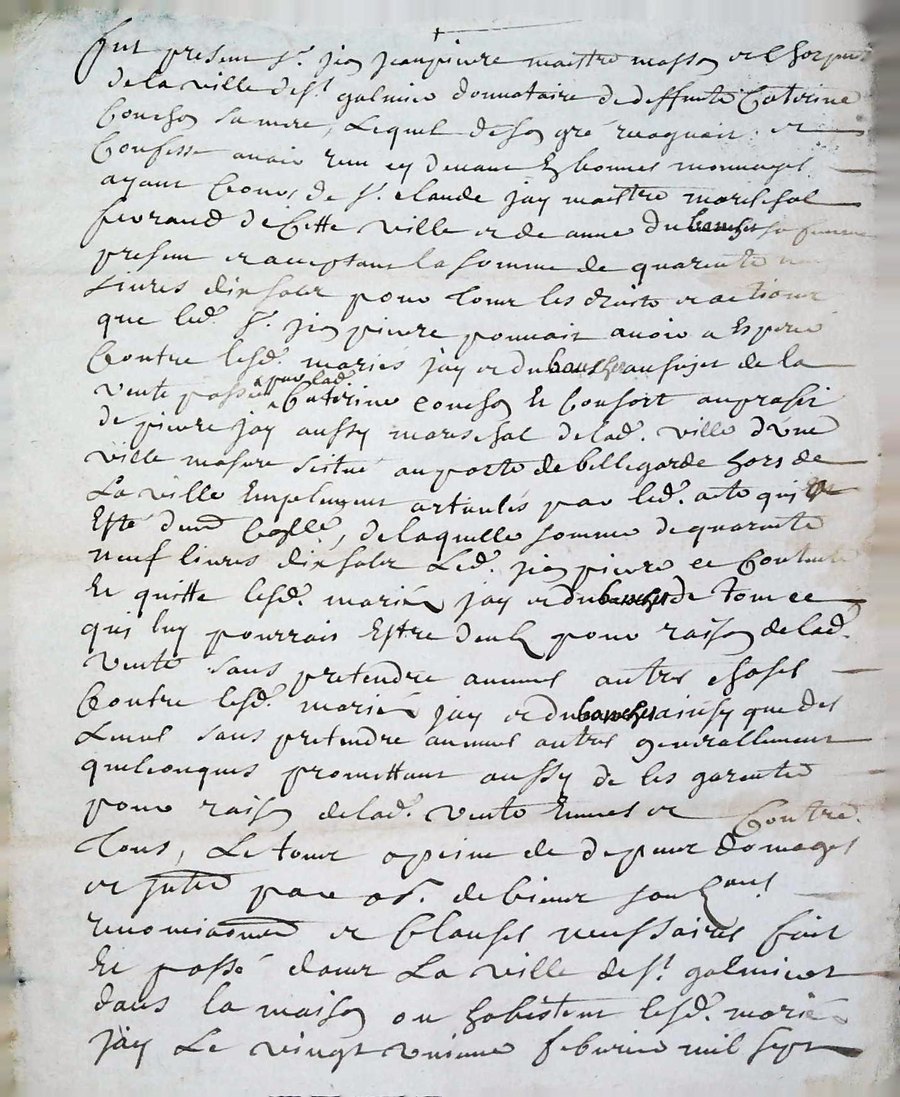 fut present sr. jean jeanpierre maittre masson et charpan
de la ville de st galmier donnataire de deffunte Caterine
Couchon sa mere, Lequel de son gre recognoit et
Confesse avoir reeu cy devant En bonnes monnoyes
ayant Cours, de sr. claude jay maittre mareschal
ferrand de Cette ville et de anne du sa femme
present et acceptant la somme de quarente neuf
Livres dix solz pour tous les droits et actions
que led. sr. jean pierre pouvait avoir a Esperer
Contre lesd. mariés jay et du au sujet de la
vente passée par lad. Caterine couchon Et Consort au proffit
de pierre jay aussy mareschal de lad. ville d'une
ville masure scitué au porte de bellegarde hors de
La ville Emplement articulés par led. acte qui a
Esté d'eux Collé, de laquelle somme de quarente
neuf livres dix solz Led. jean pierre ce Contente
Et quitte lesd. mariés jay et du de tout ce
qui luy pourrais Estre deub pour raison de lad.
vente sans pretendre aucunes autres choses
Contre lesd. mariés jay et du ainsy que des
Leurs sans pretendre aucunes autres generallement
quelconques promettant aussy de les garentir
pour raison de lad. vente Envers et Contre
Tous, Le tout a peine de depens domages
et inters par obl. de biens soubz
renonciaons et Clauses necessaires fait
Et passé dans La ville de st. galmier et
dans la maison ou habittent lesd. mariés
jay Le vingt unieme febvrier mil sept